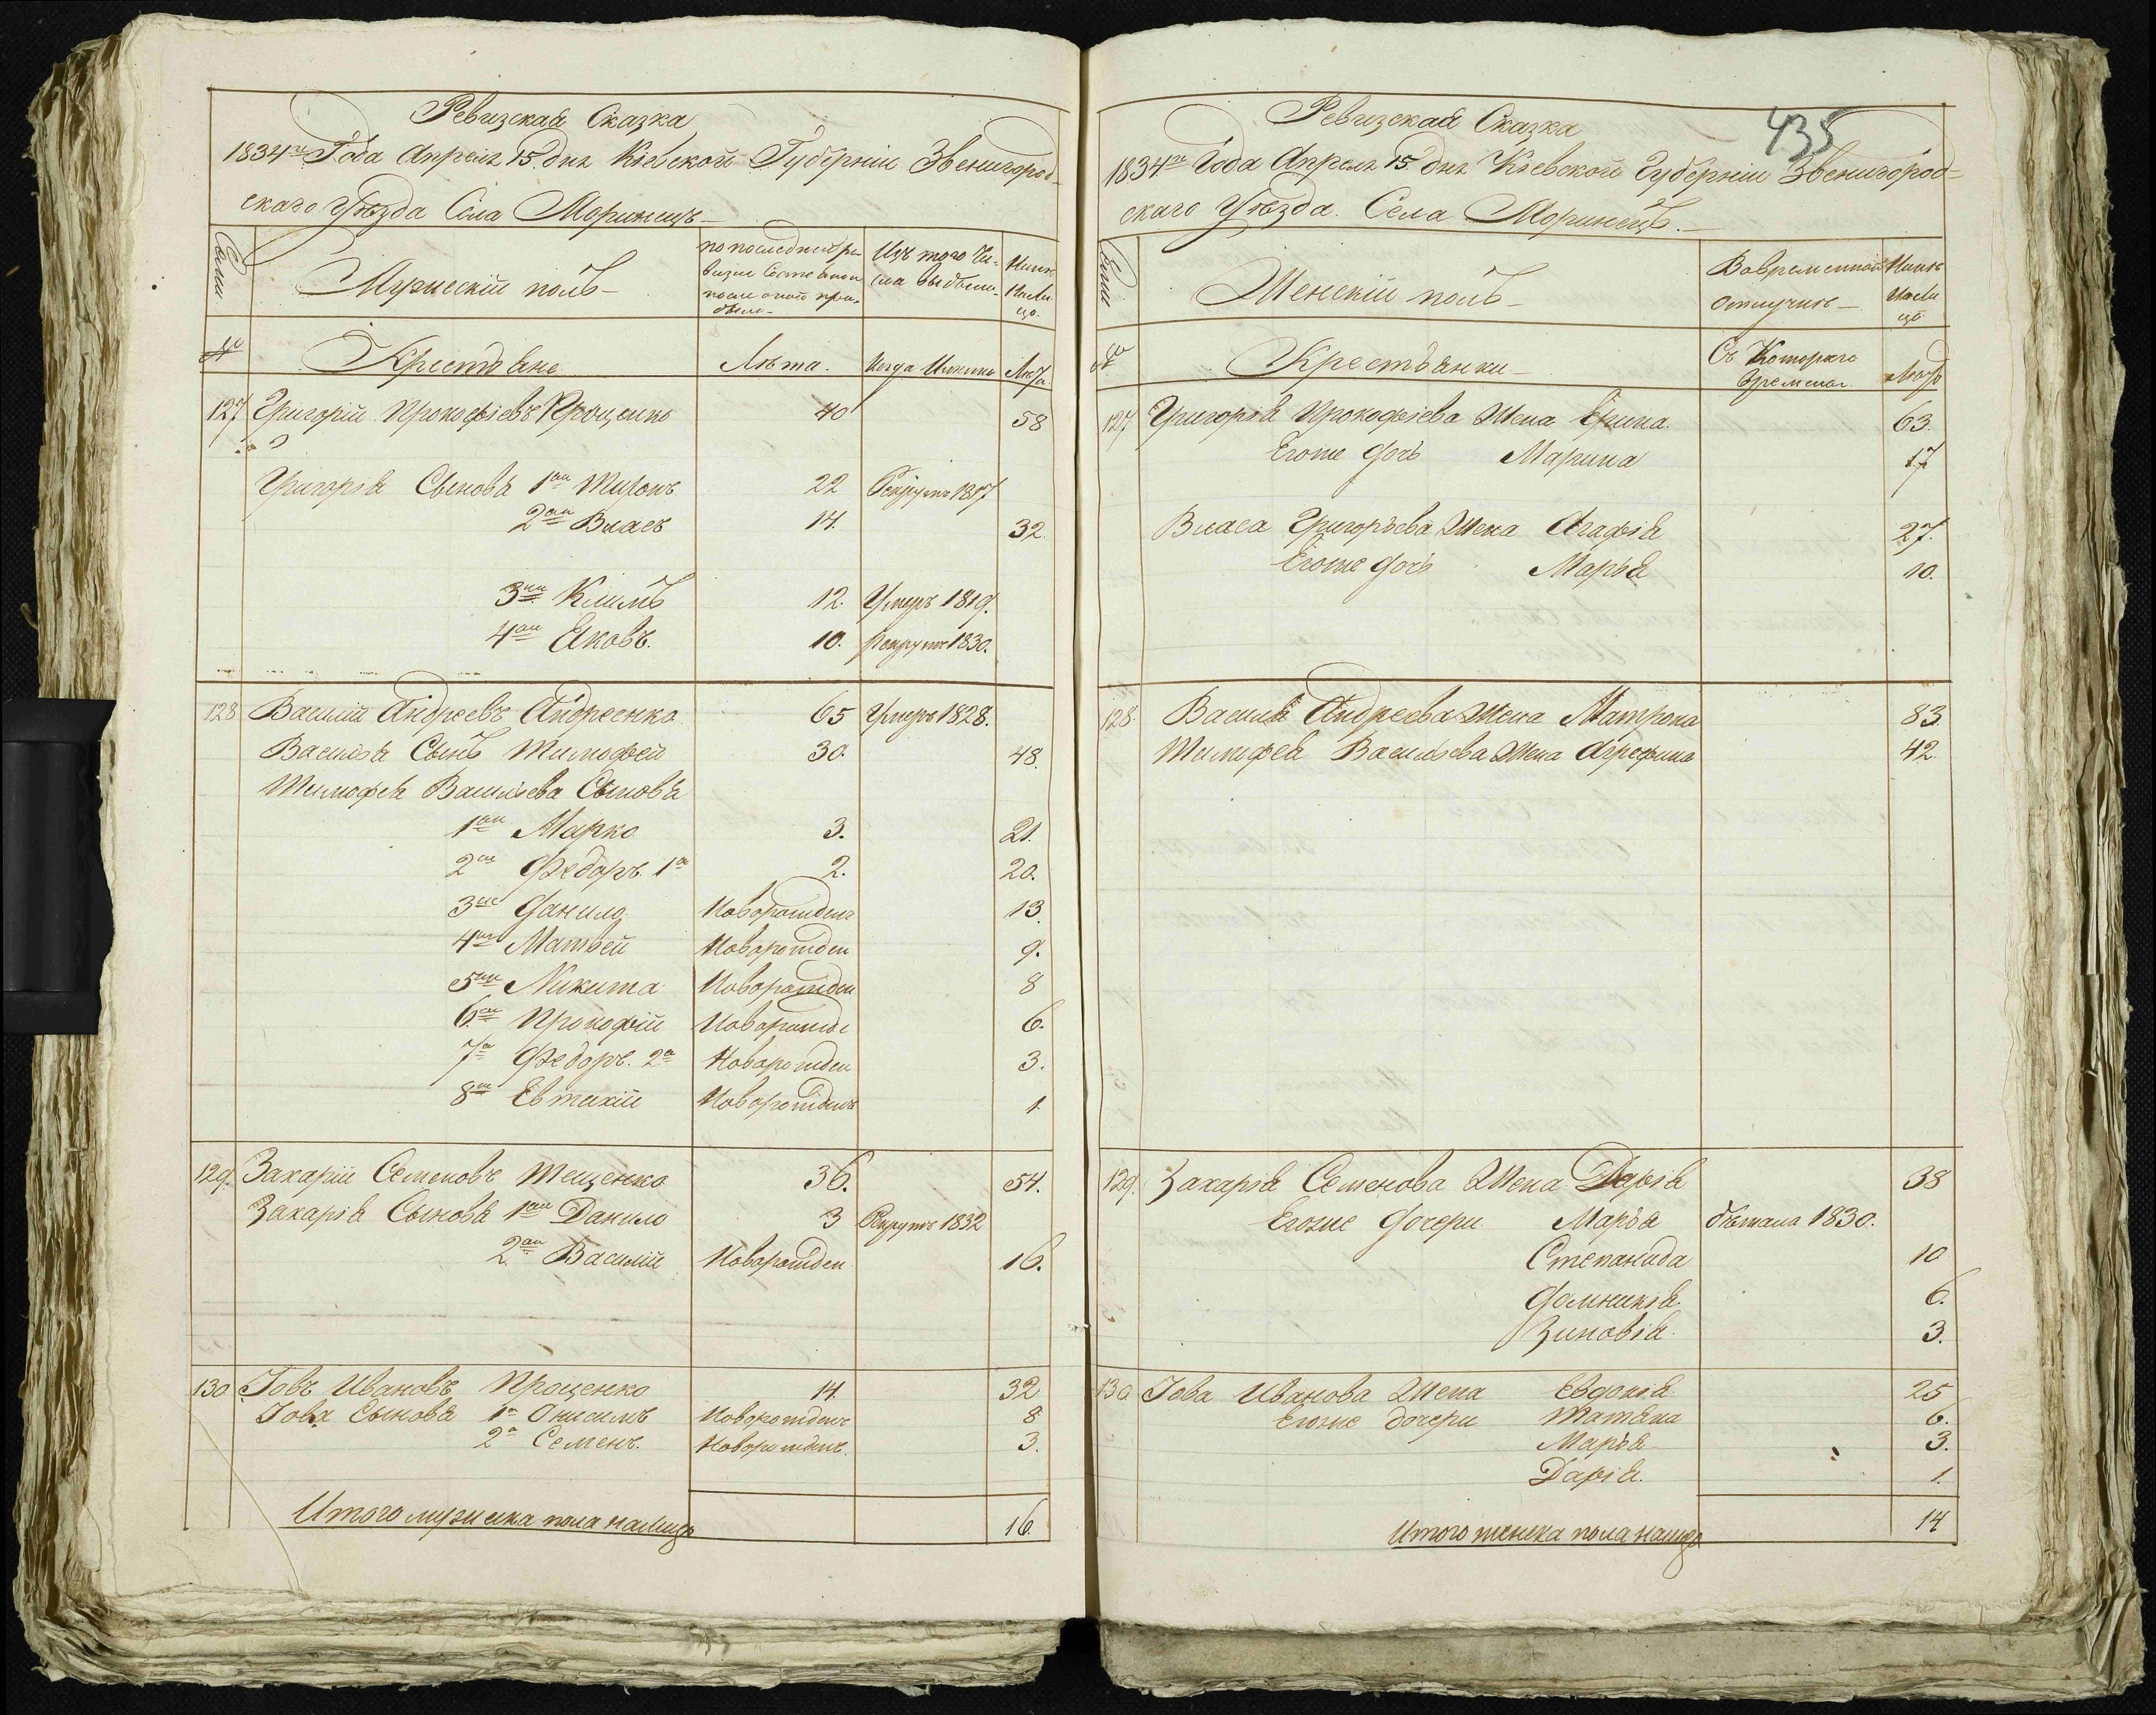 Ревизская Сказка
1834го Года Апреля 15. дня Кіевской Губерніи Звенигород-
скаго Уѣзда Села Моринецъ
Семьи
Мужескій полъ
по последней ре-
визіи Состояло и
после оной при-
было
Изъ того Чи-
сла выбыло
Ныне
Нали
цо
№
Крестьяне
Лѣта.
Когда Имянно
Лѣта
127 Григорій Прокофіевъ Проценко 40 58
Григорія Сыновья 1ый Миронъ 22 Рекрутъ 1817
2ой Власъ 14. 32.
3ій Климъ 12. Умеръ 1819.
4ый Яковъ. 10. рекрутъ 1830.
128 Василій Андреевъ Андреенко 65 Умеръ 1828.
Василія Сынъ Тимофей 30. 48.
Тимофея Васильева Сыновья
1ый Марко 3. 21.
2й Федоръ. 1й 2. 20.
3й Данило Новорожденъ 13.
4ый Матвей Новорожден 9.
5ый Никита Новорожден 8
6ый Прокофій Новорожде 6.
7й Федоръ. 2й Новорожден 3.
8й Евтихій Новорожденъ 1
129. Захарій Семеновъ Тещенко 36. 54.
Захарія Сыновья 1ый Данило 3 Рекрутъ 1832
2ой Василій Новорожден 16.
130 Іовъ Ивановъ Проценко 14. 32
Іова Сыновья 1й Онисимъ Новорожденъ 8
2й Семенъ. Новорожденъ. 3.
Итого мужеска пола налицо 16.
435
Ревизская Сказка
1834го Года Апреля 15. дня Кіевской Губерніи Звенигород-
скаго Уѣзда. Села Моринецъ.
Семьи
Женскій полъ
Вовременной
отлучке
Ныне
Нали
цо
№
Крестьянки
Съ Котораго
Времени.
Лѣта
127 Григорія Прокофіева Жена Ирина. 63.
Егоже дочь Марина 17
Власа Григорьева Жена Агафія 27.
Егоже дочь Марья 10.
128. Василія Андреева Жена Матрона 83.
Тимофея Васильева Жена Агрефина 42.
129. Захарія Семенова Жена Дарія 38
Егоже дочери Марья бѣжала 1830.
Степанида 10
Домникія. 6.
Зиновія. 3.
130 Іова Иванова Жена Евдокія. 25
Егоже дочери Татьяна 6.
Марья 3.
Дарія. 1.
Итого женска пола налицо 14